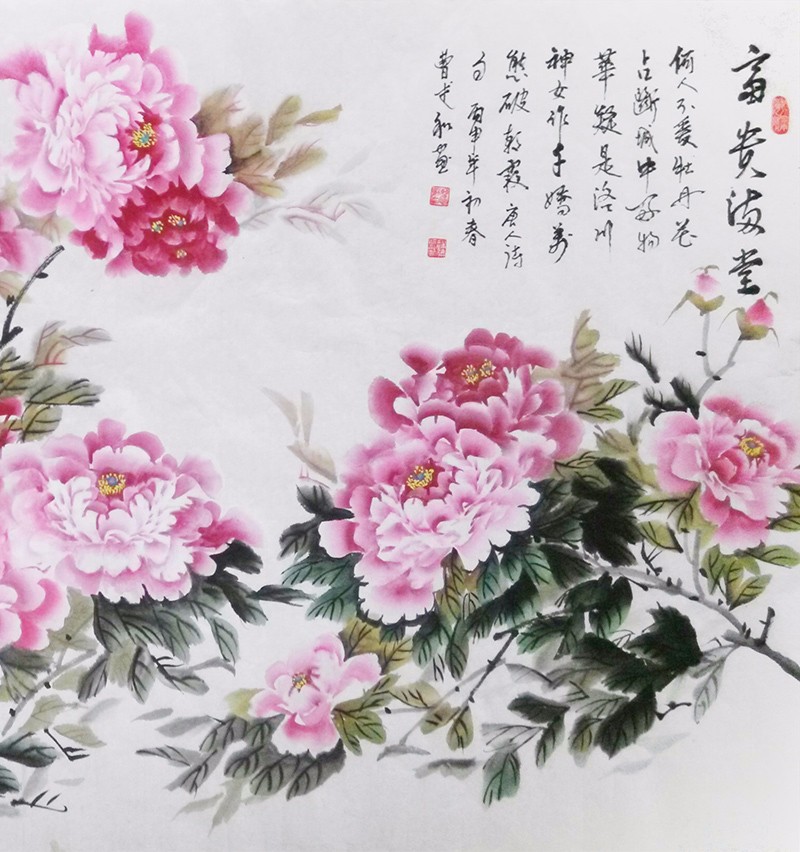 富贵满堂
何人不爱牡丹花
占断城中好物
华疑是洛川
神女作千娇万
态破朝霞唐人诗
句丙申年初春
曹文和画